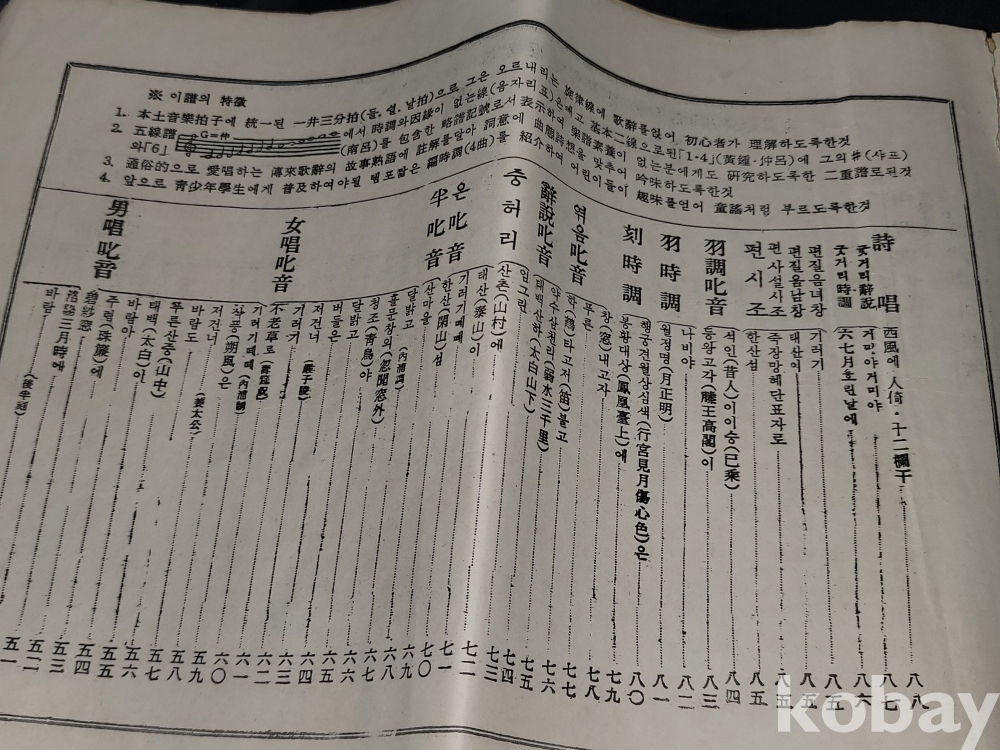 ※ 이譜의 特徵
1. 本土音樂拍子에 統一된 一井三分拍(들, 쉴, 날拍)으로 그은 오르내리는 旋律線에 歌辭를얹어 初心者가 理解하도록한것
2. 五線譜 G=仲 에서 時調와因緣이 없는線(음자리표)은빼고 基本二線으로된「1·4」(黃鍾·仲呂)에 그의#(샤프)
와「6」 (南呂)를 包含한 略譜記號로서 表示하여 樂譜素養이 없는분에게도 硏究하도록한 二重譜로된것
3. 通俗的으로 愛唱하는 傳來歌辭의 故事熟語에 註解를달아 詞意에 曲態詩想을 맞추어 吟味하도록한것
4. 앞으로 靑少年學生에게 普及하여야될 템포짧은 編時調(4曲)를 紹介하여 어린이들이 趣味를얻어 童謠처럼 부르도록한것
男唱叱音
바람 (後半刻) 五一
三月時에 五二
碧紗窓 五三
주렴(珠簾)에 五四
바람아 五五
태백(太白)이 五六
푸른산중(山中) 五七
바람도 (姜太公) 五八
저건너 五九
삭풍(朔風)은 六〇
기러기떼떼 (內浦制) 六一
不老草로 六二
女唱叱音
기러기
저건너 (嚴子陵)
버들은 六五
달밝고 六六
청조(靑鳥)야 六七
흘문창외(忽聞窓外) 六八
달밝고 (內浦調) 六九
半叱音
산마을 七〇
한산(閑山)섬 七一
온叱音
기러기떼떼
태산(泰山)이 七二
중허리
산촌(山村)에 七三
일그린 七四
辭說叱音
태백산하(太白山下) 七五
약수삼천리(弱水三千里) 七六
엮음叱音
한 타고저(笛)불고 七七
푸른 七八
刻時調
창(窓)내고자
봉황대상(鳳凰臺上)에 七九
행궁견월상심색(行宮見月傷心色)은 八〇
羽時調
월정명(月正明) 八一
나비야 八二
羽調叱音
등왕고각(滕王高閣)이 八三
석인(昔人)이이승(已乘) 八四
편시조
한산섬 八五
죽장망혜단표자로 八五
편사설시조
편질음남창 태산이 八五
편질음녀창 기러기 八五
굿거리時調 六七月흐린날에 八六
굿거리辭說 거미야거미야 八七
詩唱
西風에 人倚·十二欄干 八八
kobay